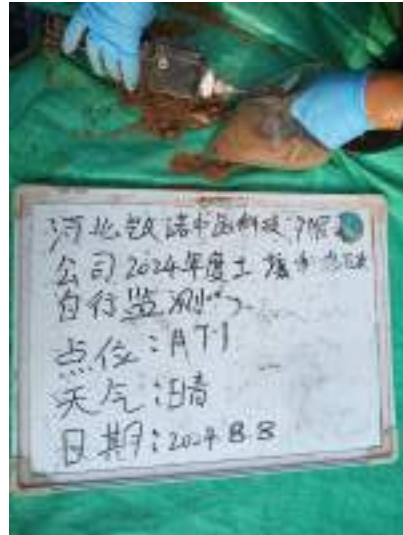 河北铁诺节函科技有限
公司2024年度土壤和地下水
自行监测
点位:AT1
天气:晴
日期:2024.8.8